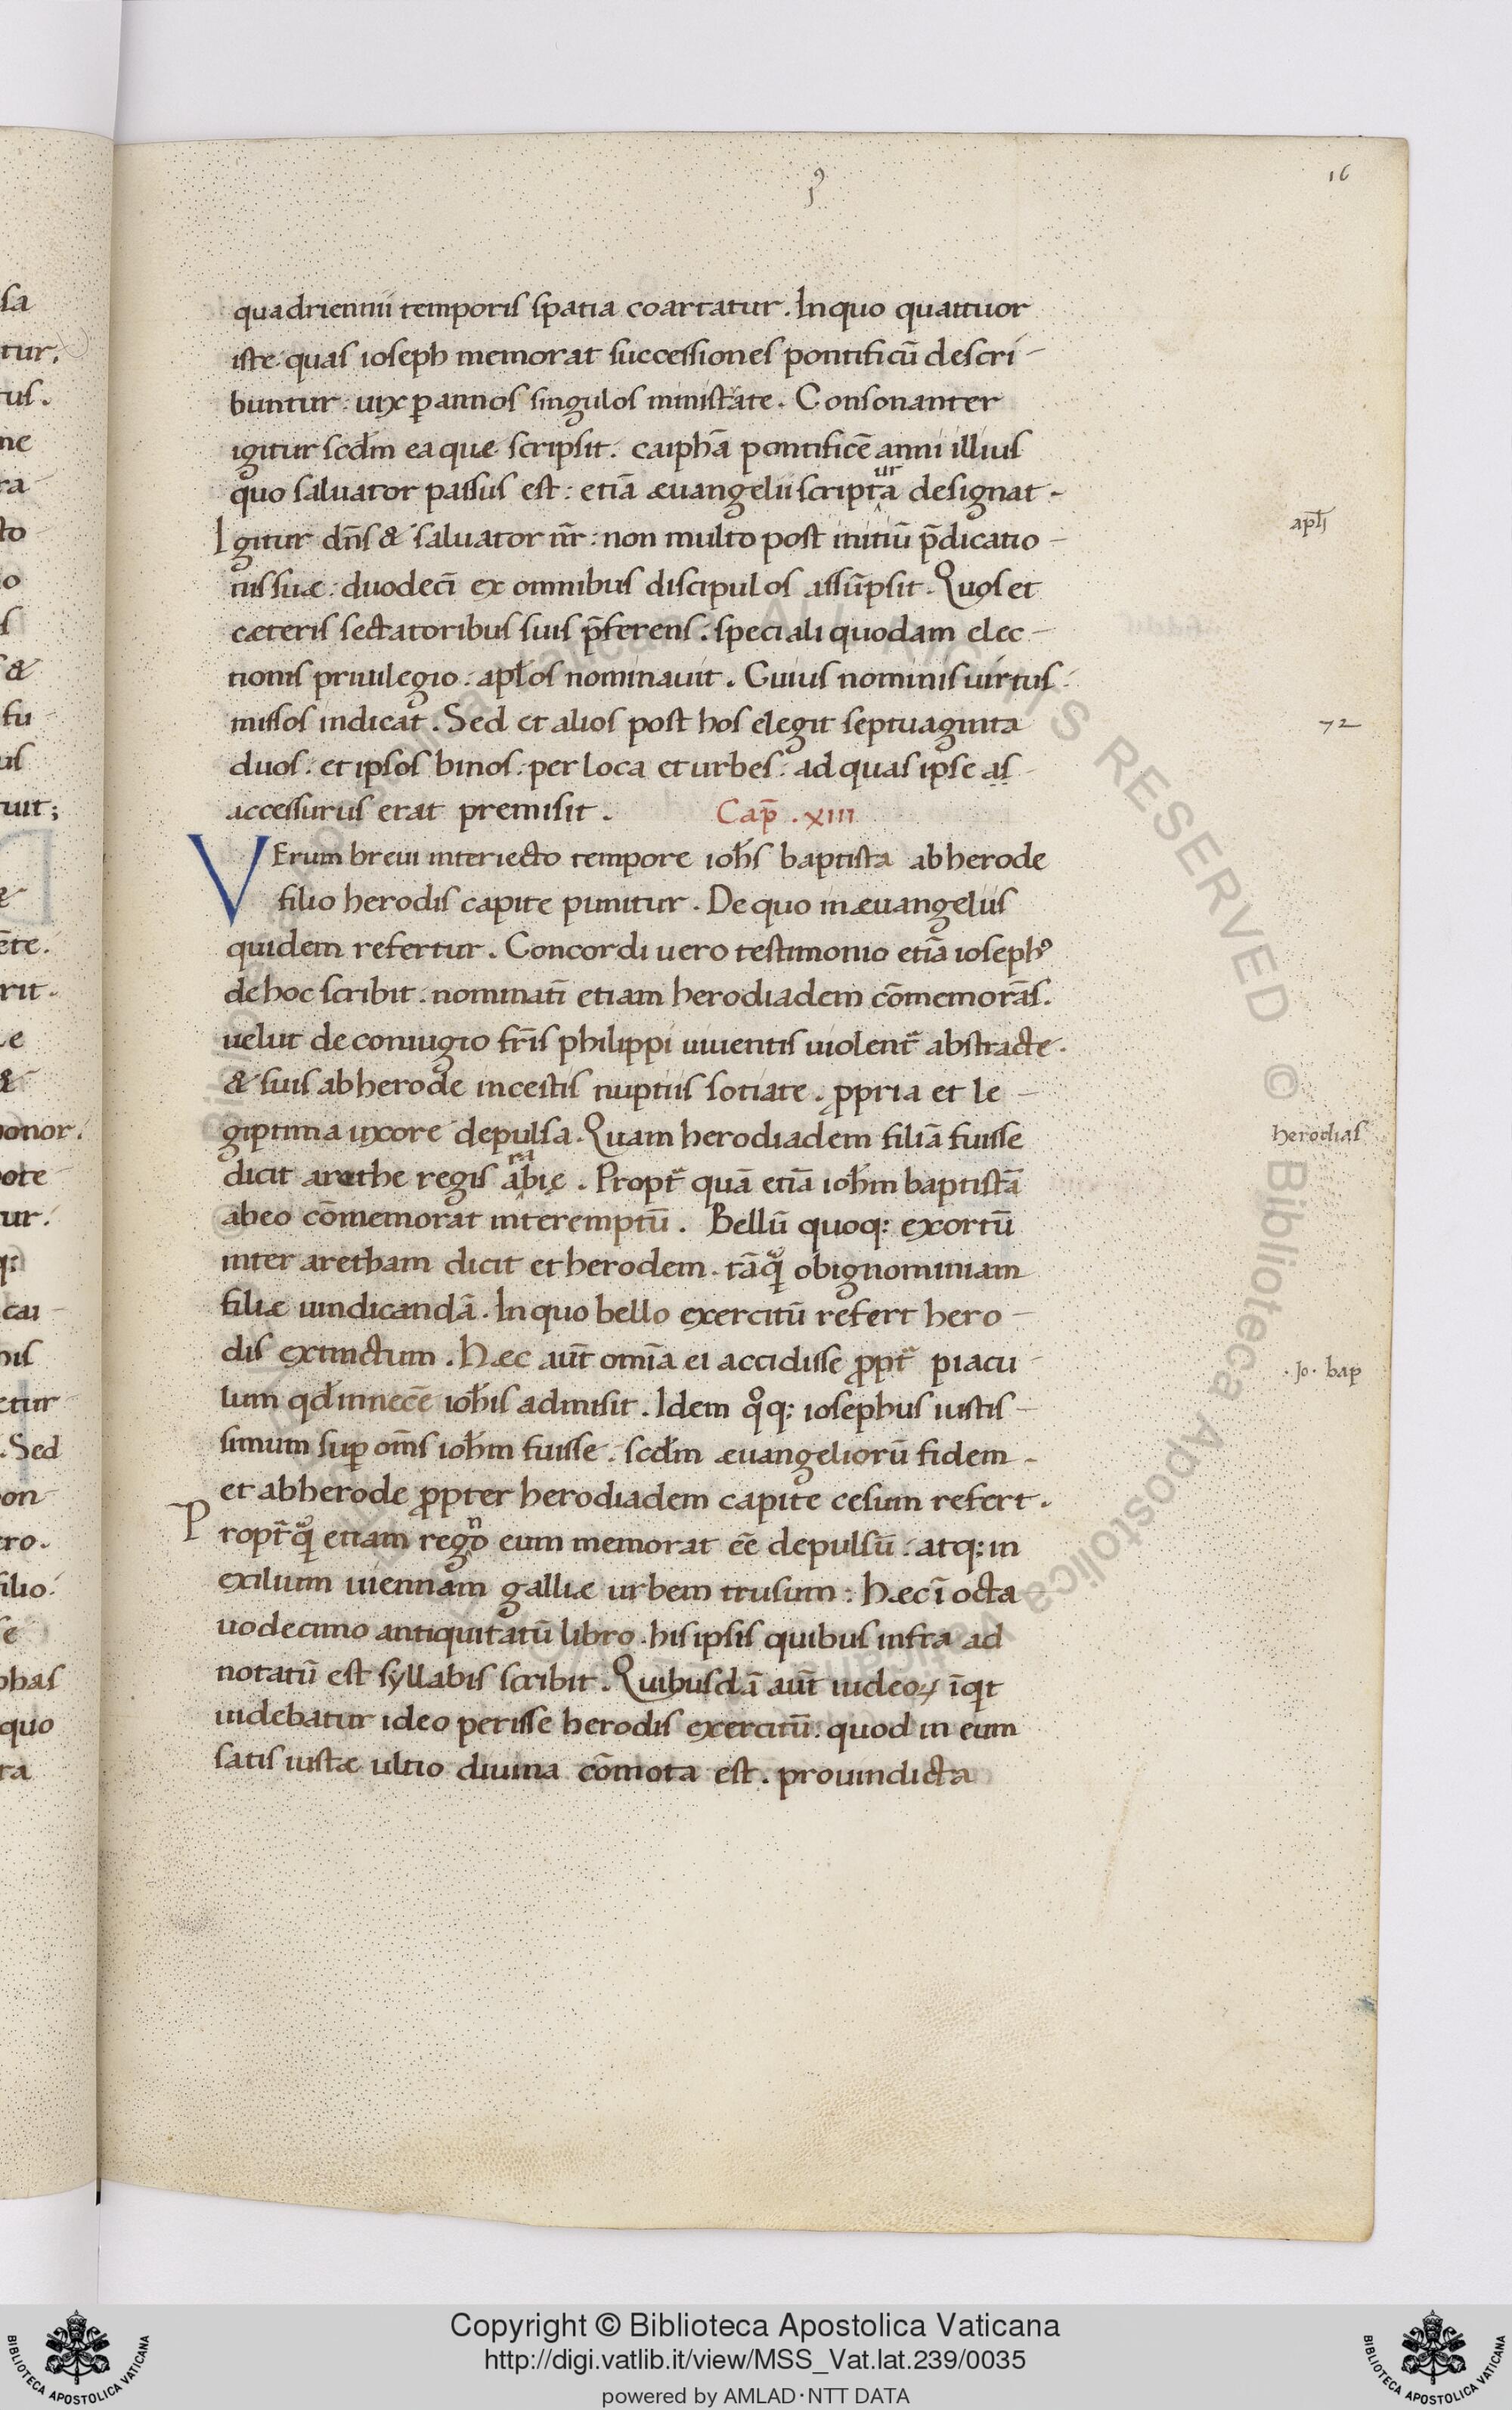 16
quadriennii temporis spatia coartatur. In quo quattuor
iste quas ioseph memorat successiones pontificū descri-
buntur: uix ꝑ annos singulos ministrate. Consonanter
igitur scd̄m ea que scripsit. caiphā pontificē anni illius
quo saluator passus est: etiā æuangelii scripturā designat.
apl̄i
Igitur dn̄s & saluator nr̄: non multo post initiū p̄dicatio-
nis suæ: duodeci̅ ex omnibus discipulos assūpsit. Quos et
cæteris sectatoribus suis p̄ferens: speciali quodam elec-
tionis priuilegio: apl̄os nominauit. Cuius nominis uirtus
missos indicat. Sed et alios post hos elegit septuaginta
72
duos. et ipsos binos. per loca et urbes: ad quas ipse as
accessurus erat premisit. Cap̄. XIII
VErum breui interiecto tempore ioh̄s baptista ab herode
filio herodis capite punitur. De quo in æuangelus
quidem refertur. Concordi uero testimonio etiā iosephꝰ
de hoc scribit. nominati̅ etiam herodiadem cōmemorās.
uelut de coniugio fr̄is philippi uiuentis uiolent̄ abstracte.
& suis ab herode incestis nuptiis sotiate. ꝓpria et le-
giptima uxore depulsa. Quam herodiadem filiā fuisse
herodias
dicit arethe regis arabię. Propt̄ quā etiā ioh̄m baptistā
ab eo cōmemorat interemptū. Bellū quoq: exortū
inter aretham dicit et herodem. tāq̨ͣ ob ignominiam
filiæ uindicandā. In quo bello exercitū refert hero-
dis extinctum. Hæc aut̄ omīa ei accidisse ꝓpt̄ piacu-
.Jo. bap
lum qd̄ in necē ioh̄is admisit. Idem qͦq: iosephus iustis-
simum suꝑ om̄s ioh̄m fuisse. scd̄m æuangeliorū fidem.
et ab herode ꝓpter herodiadem capite cesum refert.
Propt̄ q̨ͣ etiam regno eum memorat eē depulsū. atq: in
exilium uiennam galliæ urbem trusum: Hæc ī octa
uodecimo antiquitatū libro. his ipsis quibus infra ad
notatū est syllabis scribit. Quibusdā aut̄ iudeoꝝ īqt
uidebatur ideo perisse herodis exercitū. quod in eum
satis iustæ ultio diuina cōmota est. pro uindicta
sa
tur.
tus.
ne
ra
to
io
s
&
fu
us
tuit;
ēte.
rit.
e
&
honor.
pote
tur.
q:
cai
his
etur
. Sed
non
ero.
filio.
se
phas
quo
ra
Copyright © Biblioteca Apostolica Vaticana
http://digi.vatlib.it/view/MSS_Vat.lat.239/0035
powered by AMLAD·NTT DATA
BIBLIOTECA APOSTOLICA VATICANA
BIBLIOTECA APOSTOLICA VATICANA